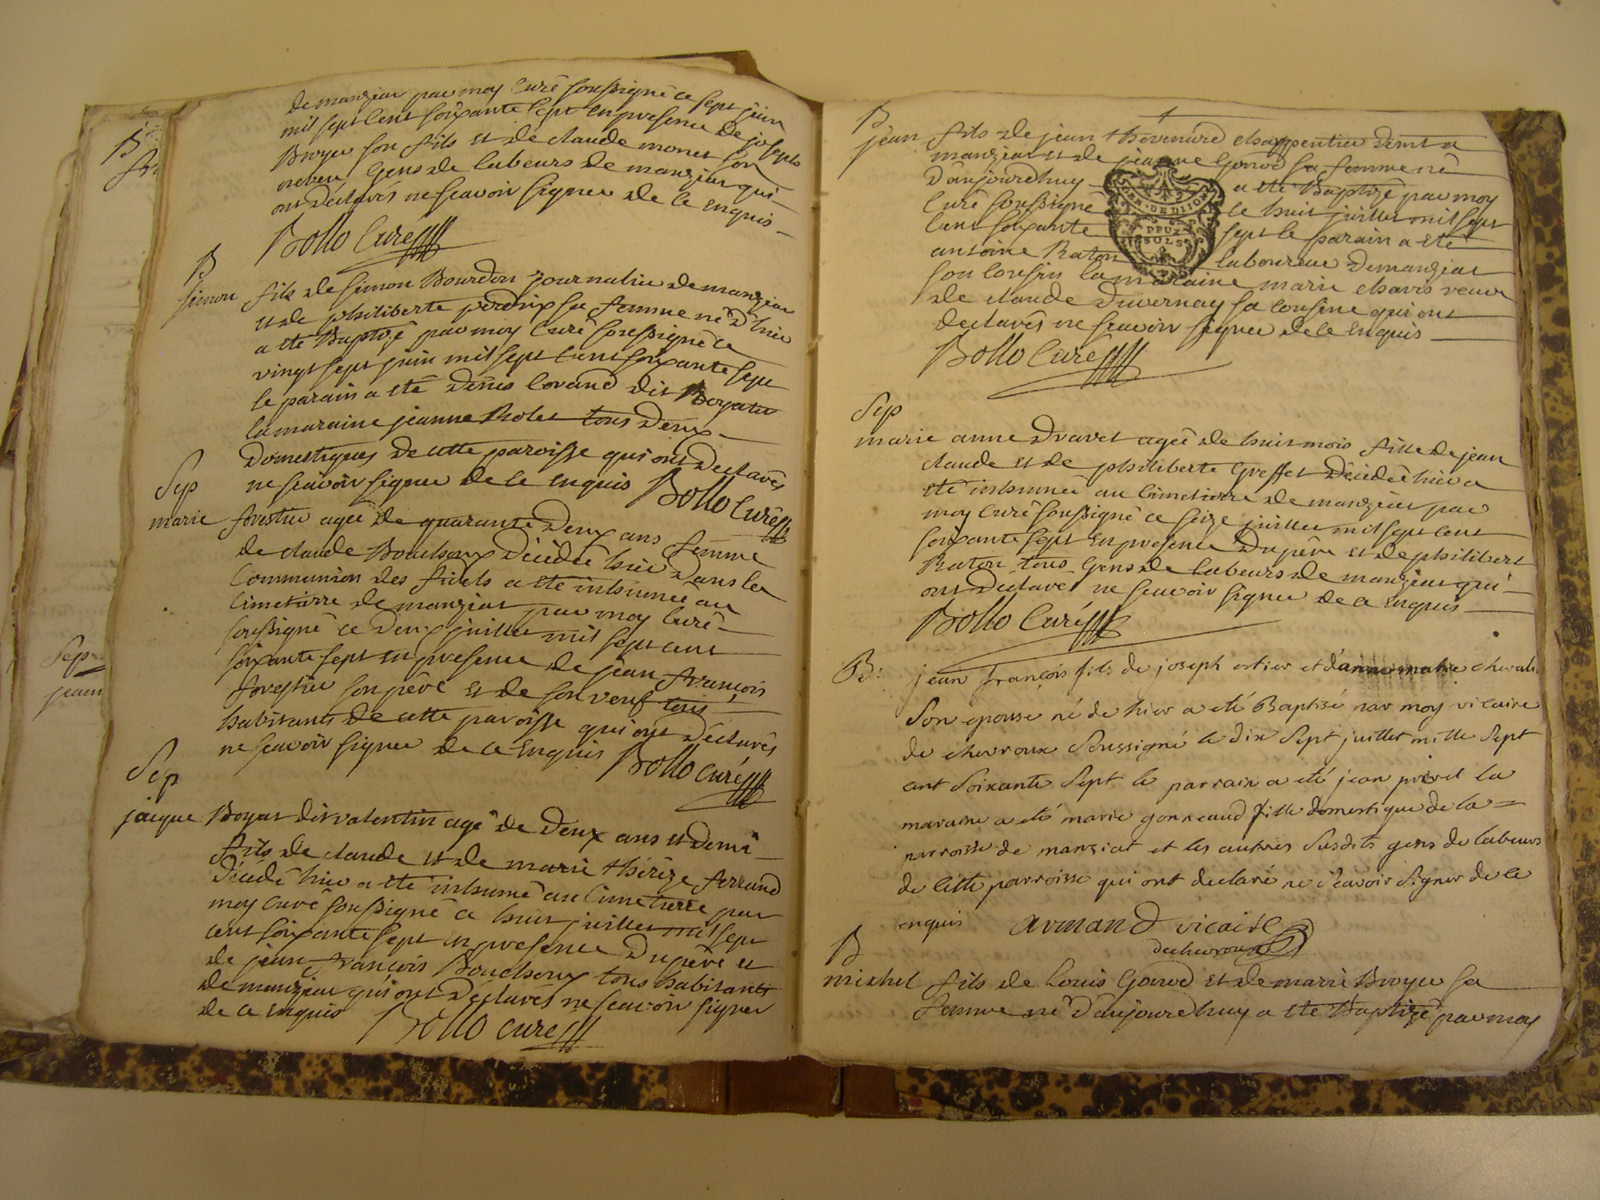 de manziat par moy Curé soussigné ce sept juin
mil sept Cent soixante sept en presence de joseph
Broyer son fils et de claude monet son
neveu gens de labeurs de manziat qui
ont déclarés ne scavoir signer de ce enquis
Bollo Curé
B
simon fils de simon Bourdon journalier de manziat
et de philiberte perdrix sa femme né d'hier
a été Baptisé par moy Curé soussigné ce
vingt sept juin mil sept Cent soixante sept
le parain a été Denis Lorand dit Boyatier
la maraine jeanne Rolet tous deux
domestiques de cette paroisse qui ont déclarés
ne scavoir signer de ce enquis Bollo Curé
Sep
marie forestier agée de quarante deux ans femme
de claude Bouchoux décédée hier dans la
Communion des fidels a été inhumée au
Cimetierre de manziat par moy Curé
soussigné ce deux juillet mil sept cent
soixante sept en presence de jean françois
forestier son père et de son veuf tous
habitants de cette paroisse qui ont déclarés
ne scavoir signer de ce enquis Bollo Curé
Sep
jacque Boyat dit valentin agé de deux ans et demi
fils de claude et de marie thérèze ferrand
décédé hier a été inhumé au Cimetierre par
moy curé soussigné ce huit juillet mil sept
cent soixante sept en presence du père et
de jean françois Bouchoux tous habitants
de manziat qui ont déclarés ne scavoir signer
de ce enquis Bollo Curé
B
jean fils de jean thevenard charpentier demt a
manziat et de jeanne Gonod sa femme né
d'aujourdhuy a été Baptizé par moy
Curé soussigné le huit juillet mil sept
Cent soixante sept le parain a été
antoine Raton laboureur de manziat
son cousin la maraine marie chavis veuve
de claude Duvernay sa cousine qui ont
declarés ne scavoir signer de ce enquis
Bollo Curé
GEN. DE DIJON
DEUX
SOLS
Sep
marie anne Dravet agée de huit mois fille de jean
claude et de philiberte Greffet décédée hier a
été inhumée au Cimetierre de manziat par
moy Curé soussigné ce seize juillet mil sept cent
soixante sept en presence du père et de philibert
Raton tous gens de labeurs de manziat qui
ont declaré ne scavoir signer de ce enquis
Bollo Curé
B: jean françois fils de joseph ortier et d'anne
Son epouse né de hier a eté Baptisé par moy vicaire
de chevroux Soussigné le dix Sept juillet mille Sept
cent Soixante Sept le parrain a eté jean prevel la
maraine a eté marie gonnaud fille domestique de la
parroisse de manziat et les autres Susdits gens de labeurs
de Cette parroisse qui ont declaré ne sçavoir Signer de ce
enquis armand vicaire
de chevroux
B
michel fils de Louis Gonod et de marie Broyer sa
femme né d'aujourdhuy a été Baptizé par moy